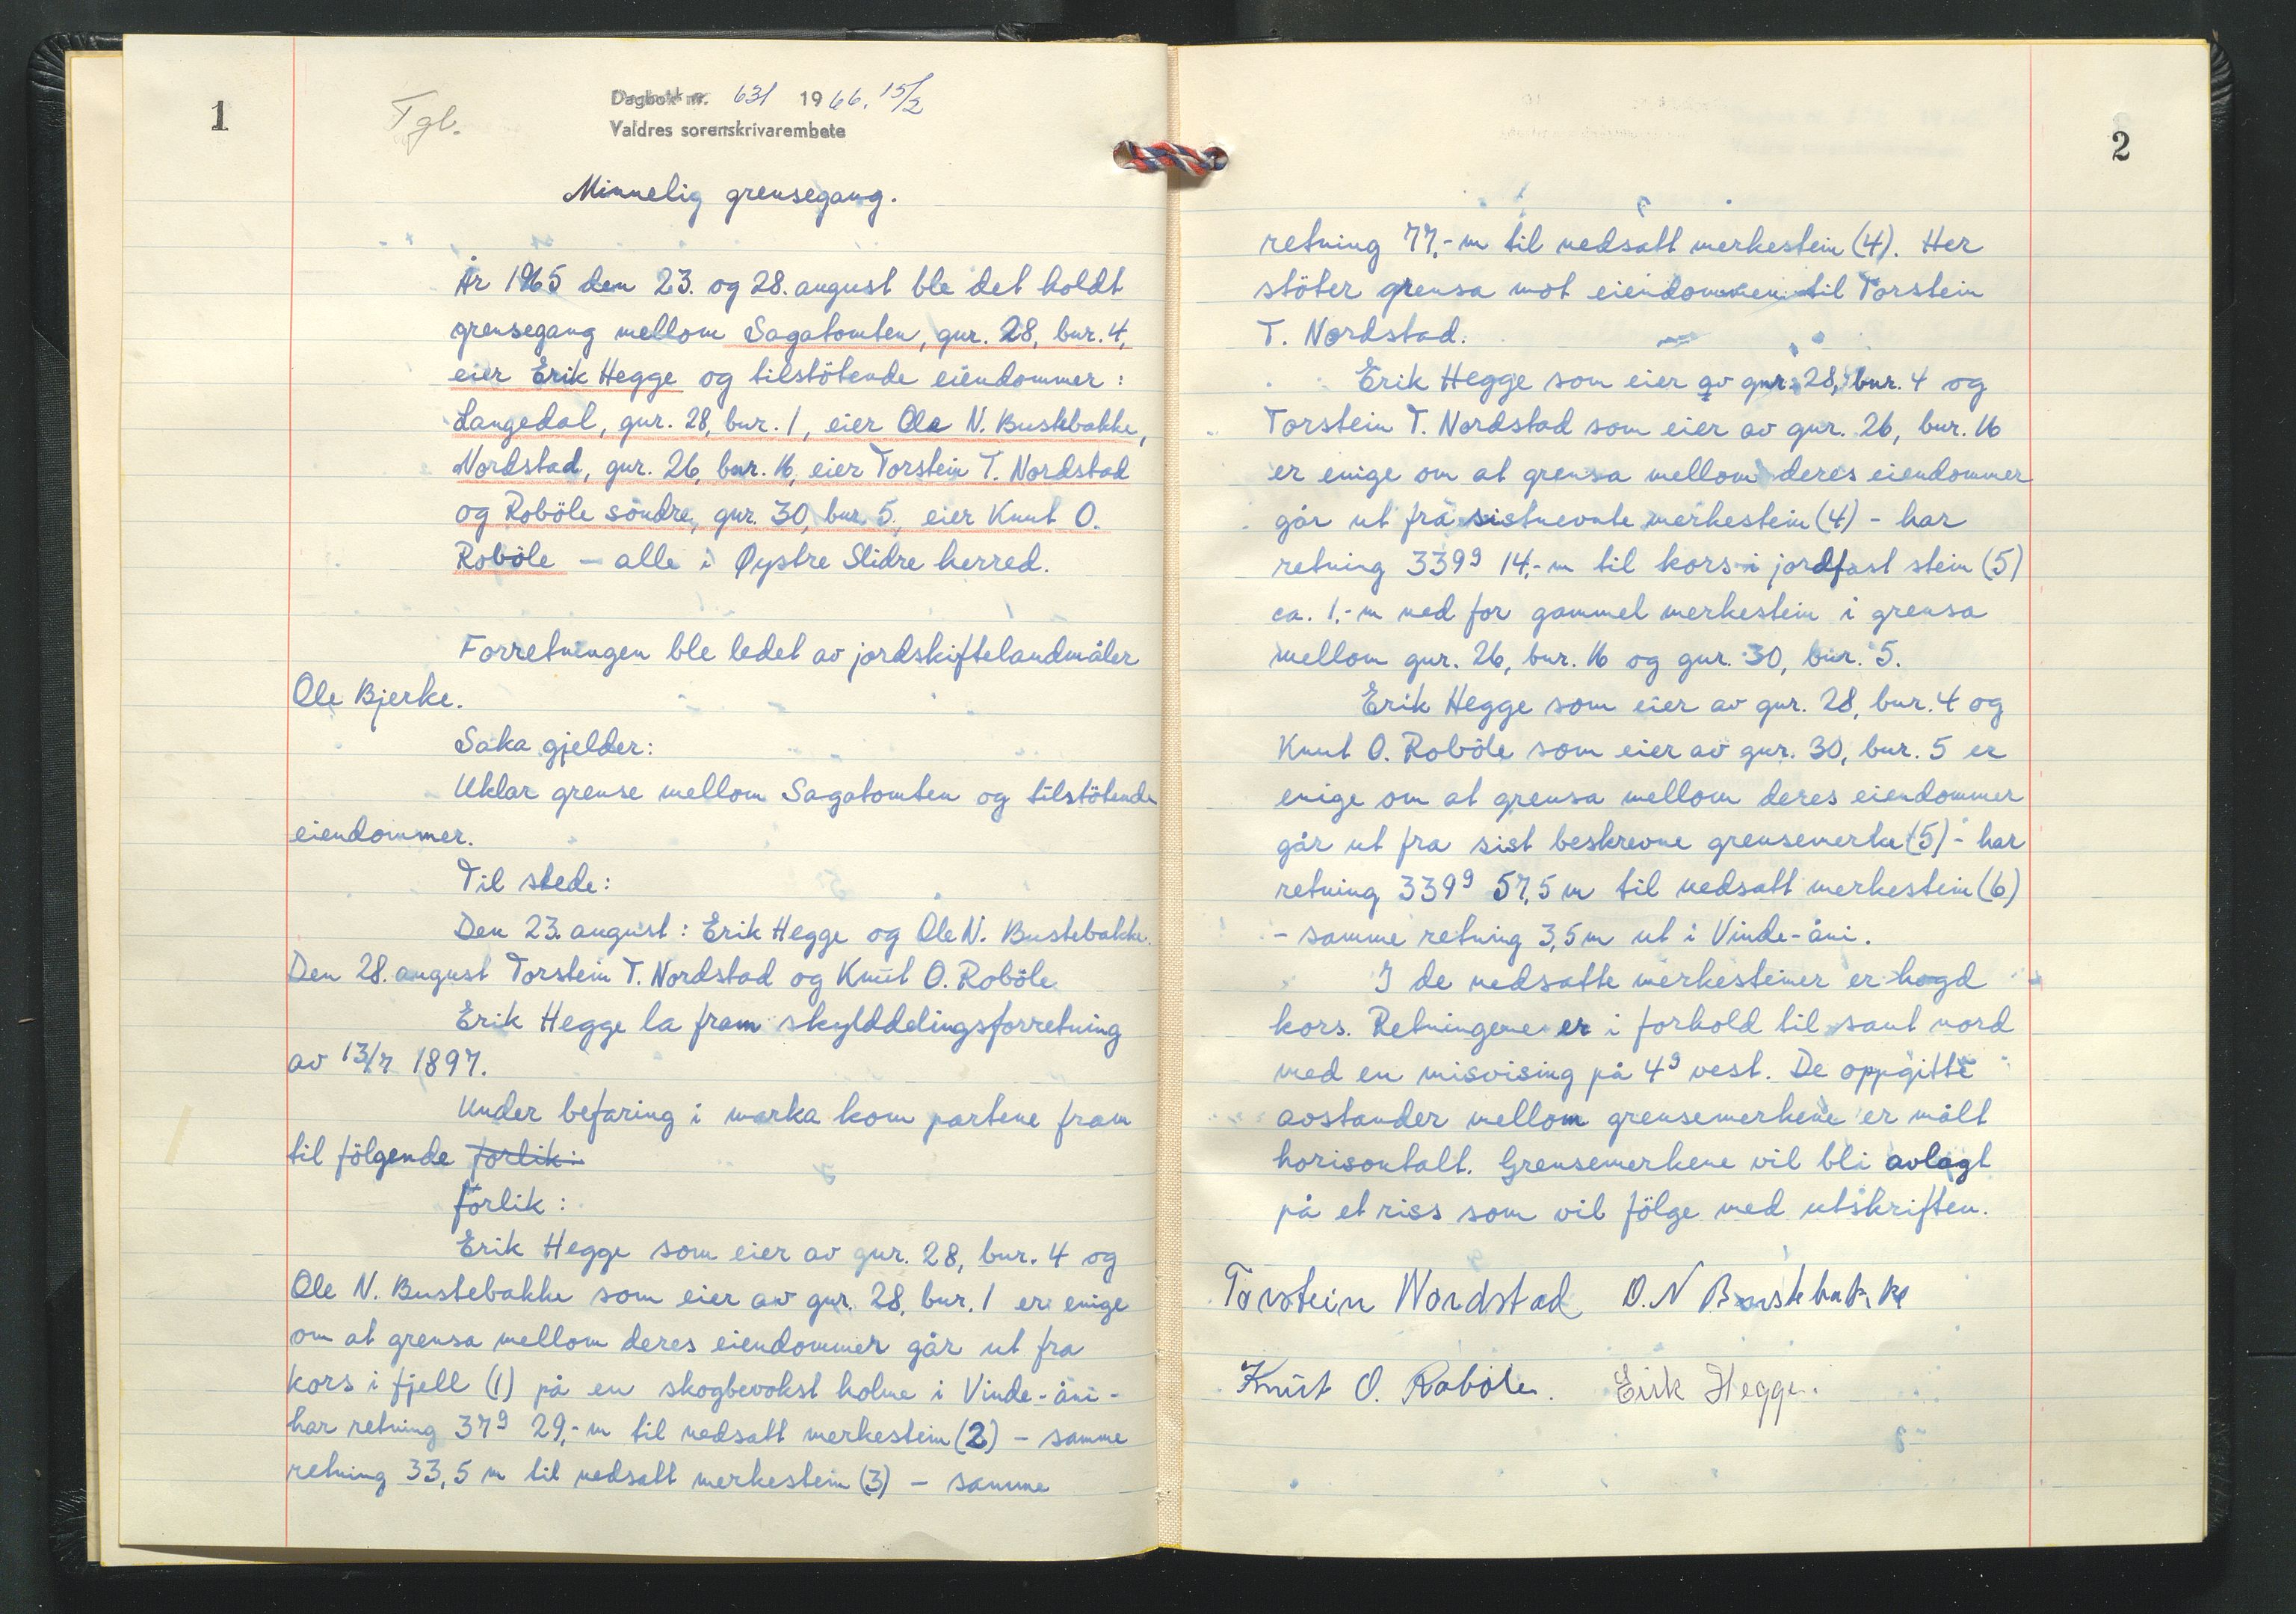 1
Tgl.
Dagbok nr. 631 1966, 15/2
Valdres sorenskrivarembete
Minnelig grensegang.
År 1965 den 23. og 28. august ble det holdt
grensegang mellom Sagatomten, gnr. 28, bnr. 4,
eier Erik Hegge og tilstötende eiendommer :
Langedal, gnr. 28, bnr. 1, eier Ole N. Bustebakke,
Nordstad, gnr. 26, bnr. 16, eier Torstein T. Nordstad
og Roböle söndre, gnr. 30, bnr. 5, eier Knut O.
Roböle – alle i Øystre Slidre herred.
Forretningen ble ledet av jordskiftelandmåler
Ole Bjerke.
Saka gjelder:
Uklar grense mellom Sagatomten og tilstötende
eiendommer.
Til stede:
Den 23. august : Erik Hegge og Ole N. Bustebakke.
Den 28. august Torstein T. Nordstad og Knut O. Roböle
Erik Hegge la fram skylddelingsforretning
av 13/7 1897.
Under befaring i marka kom partene fram
til fölgende forlik:
forlik :
Erik Hegge som eier av gnr. 28, bnr. 4 og
Ole N. Bustebakke som eier av gnr. 28, bnr. 1 er enige
om at grensa mellom deres eiendommer går ut fra
kors i fjell (1) på en skogbevokst holme i Vinde-åni -
har retning 37g 29,- m til nedsatt merkestein (2) – samme
retning 33,5 m til nedsatt merkestein (3) – samme
2
retning 77,- m til nedsatt merkestein (4). Her
stöter grensa mot eiendommen til Torstein
T. Nordstad.
Erik Hegge som eier av gnr. 28, bnr. 4 og
Torstein T. Nordstad som eier av gnr. 26, bnr. 16
er enige om at grensa mellom deres eiendommer
går ut fra sistnevnte merkestein (4) - har
retning 339g 14,- m til kors i jordfast stein (5)
ca. 1,- m ned for gammel merkestein i grensa
mellom gnr. 26, bnr. 16 og gnr. 30, bnr. 5.
Erik Hegge som eier av gnr. 28, bnr. 4 og
Knut O. Roböle som eier av gnr. 30, bnr. 5 er
enige om at grensa mellom deres eiendommer
går ut fra sist beskrevne grensemerke (5) - har
retning 339g 57,5 m til nedsatt merkestein (6)
- samme retning 3,5 m ut i Vinde-åni.
I de nedsatte merkesteiner er hogd
kors. Retningene er i forhold til sant nord
med en misvising på 4g vest. De oppgitte
avstander mellom grensemerkene er målt
horisontalt. Grensemerkene vil bli avlagt
på et riss som vil fölge med utskriften.
Torstein Nordstad O. N Bustebakke
Knut O. Roböle. Erik Hegge.